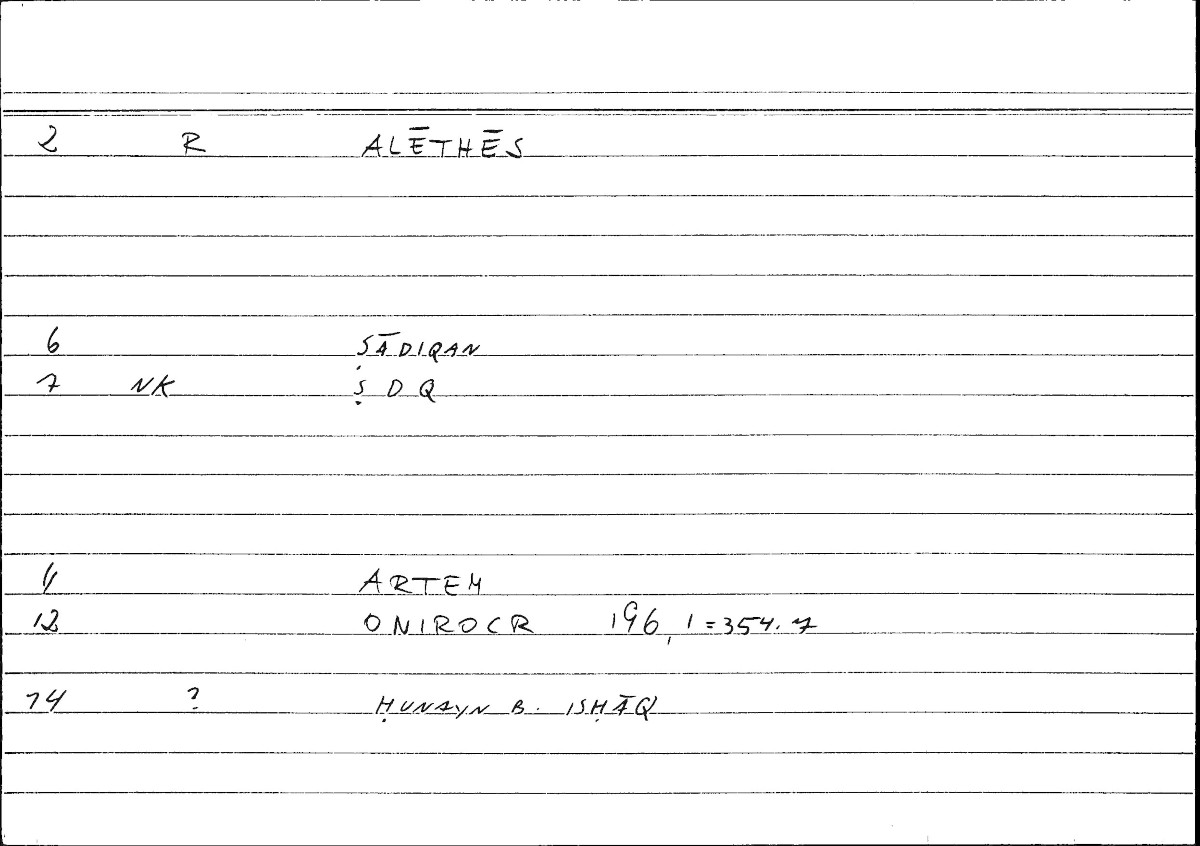 2 R ALĒTHĒS
6 ṢĀDIQAN
7 NK Ṣ D Q
11 ARTEM
12 ONIROCR 196,1=354.7
14 ? ḤUNAYN B. ISḤĀQ